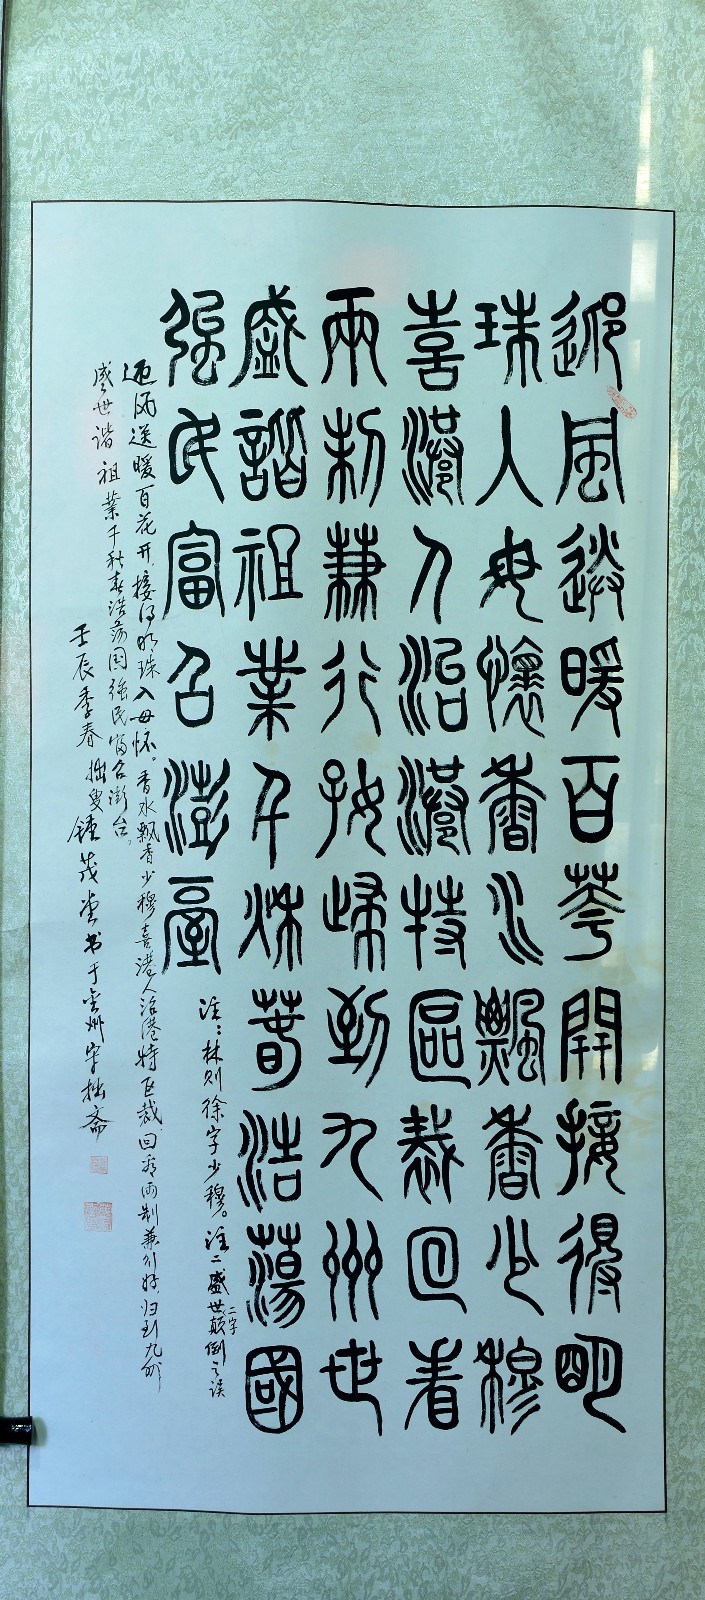 迎風送暖百華開接得明
珠人母懷香水飄香少穆
喜港人治港特區裁回看
兩制兼行好歸到九州世
盛諧祖業千秋春浩蕩國
强民富召澎臺
注：林则徐字少穆。注二盛世二字颠倒之误
迎风送暖百花开，接得明珠入母怀。香水飘香少穆喜港人治港特区裁回看两制兼行好，归到九州
盛世谐祖业千秋春浩荡国强民富召澎台。
壬辰季春拙叟钟茂堂书于金州守拙斋